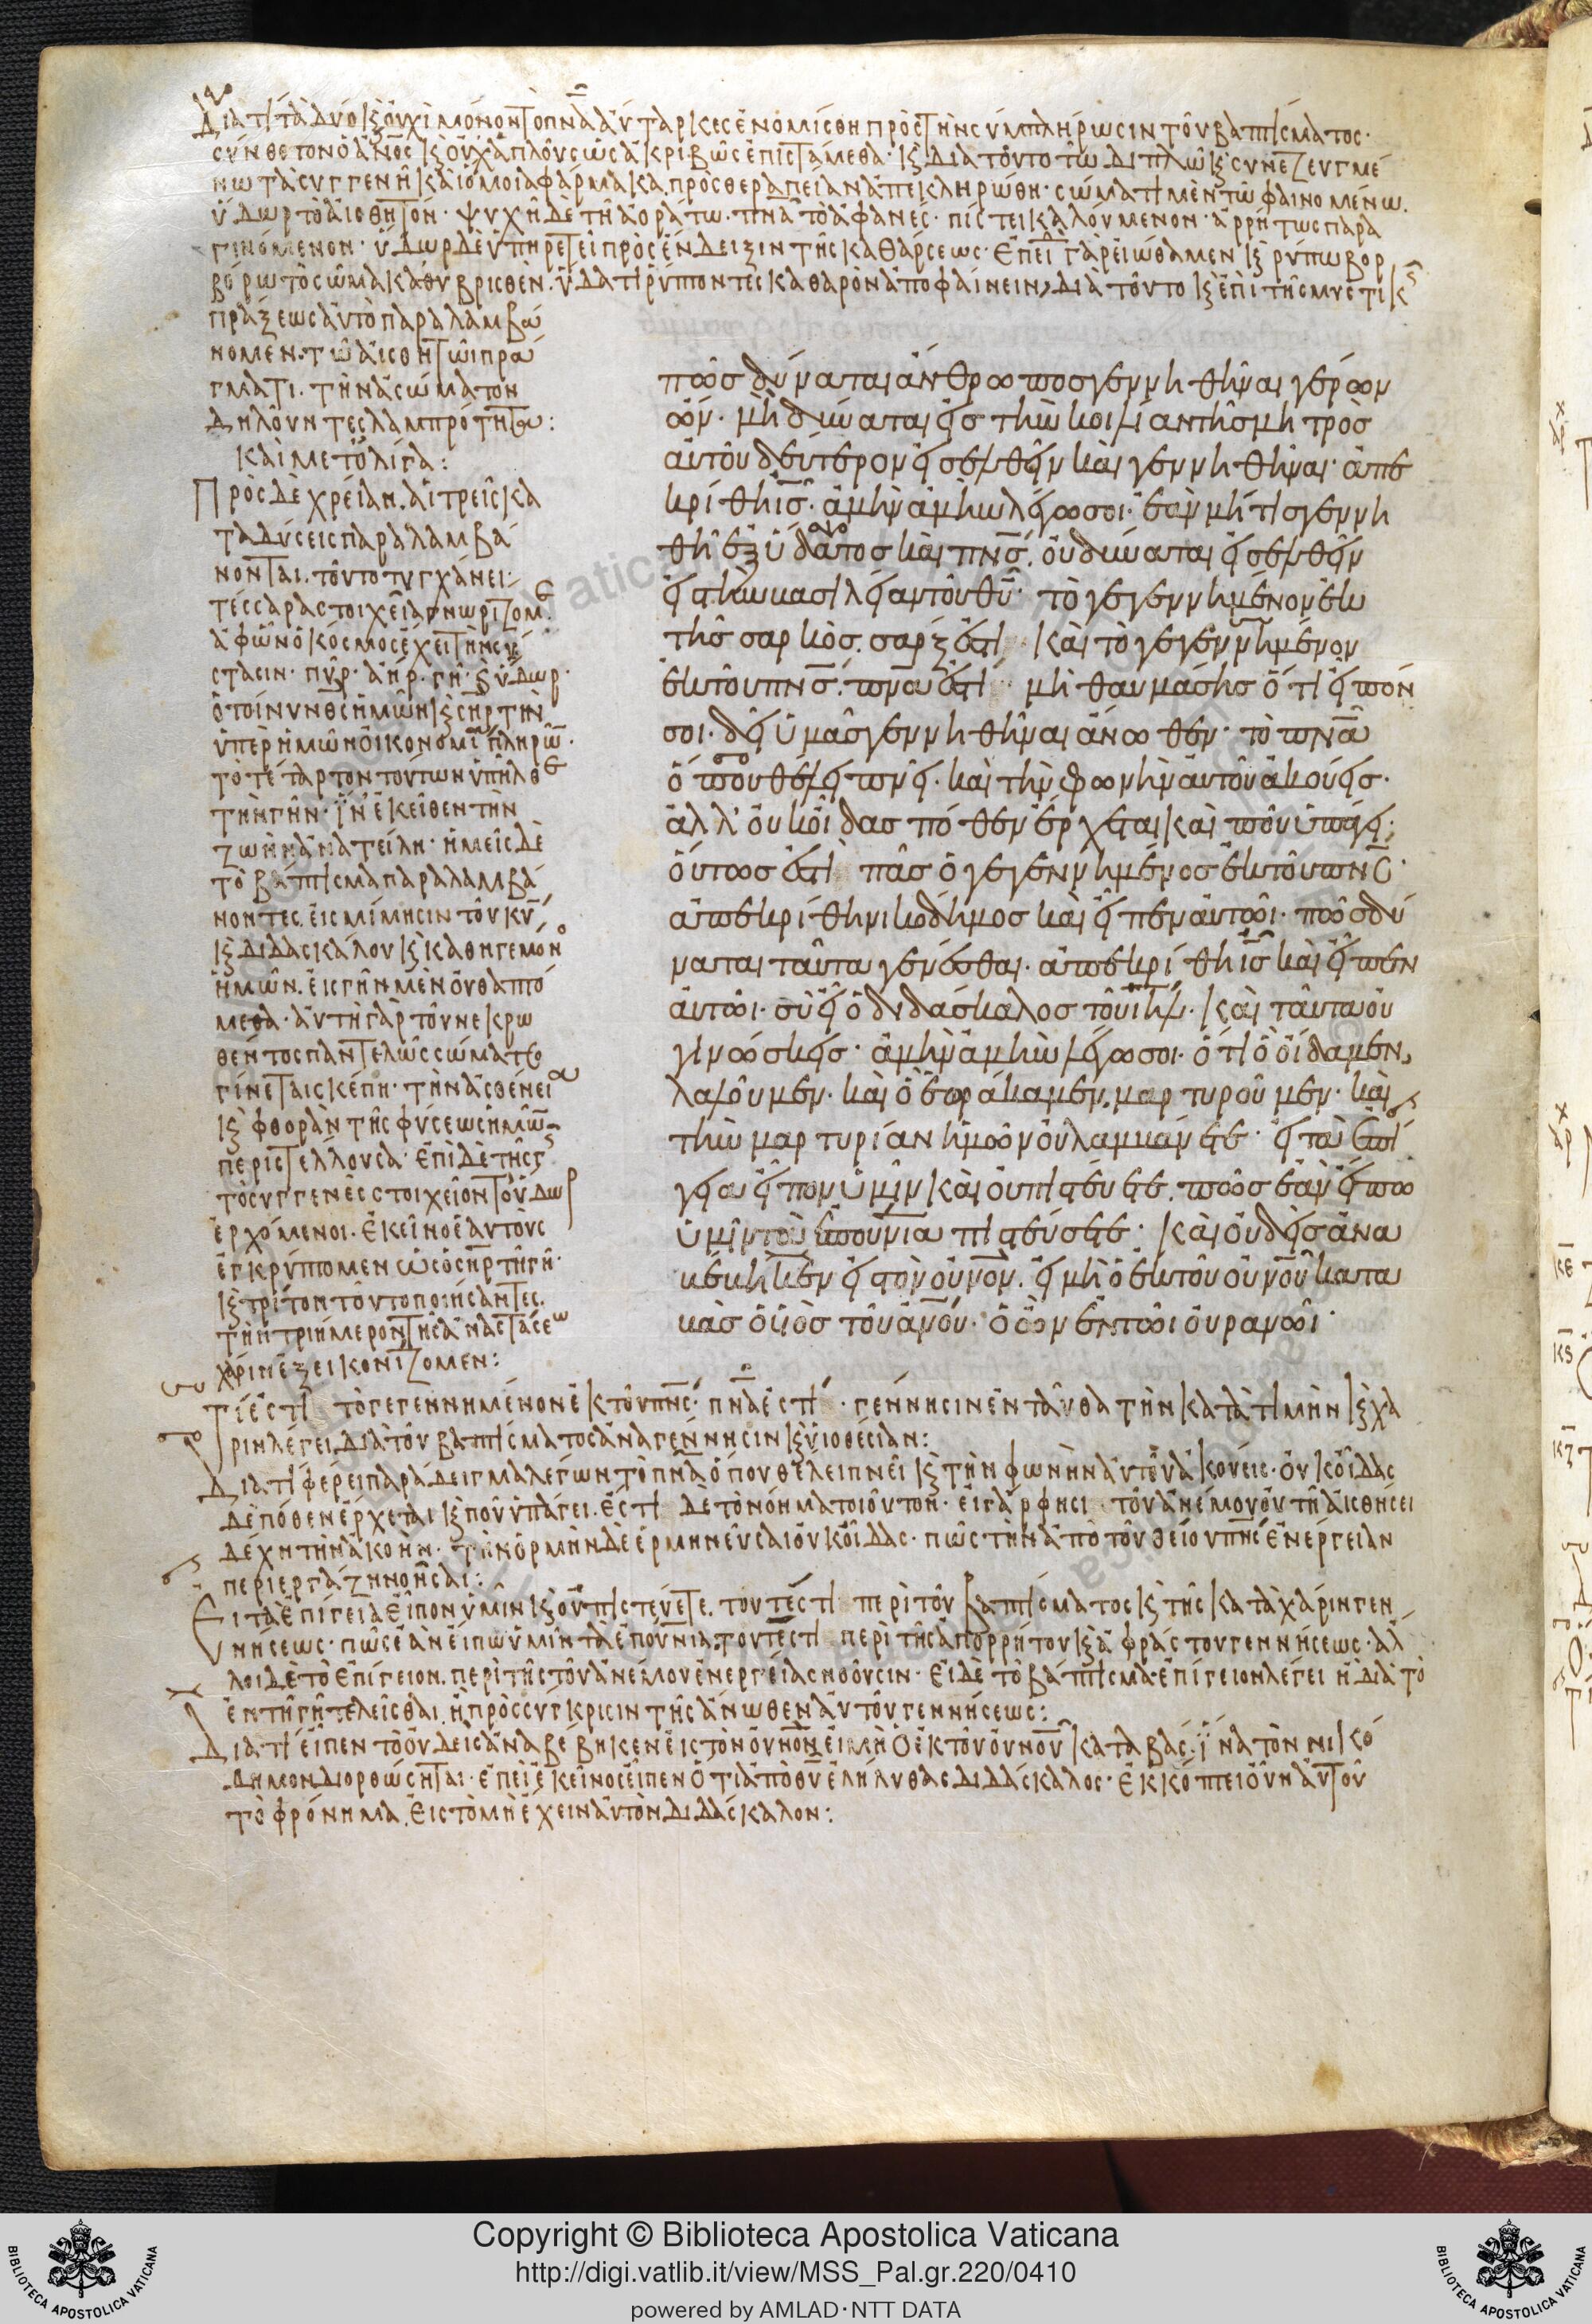 Διατί τὰ δύο καὶ οὐχὶ μόνον τὸ πνα αὔταρκες ἐνομίσθη πρὸς τὴν συμπλήρωσιν τοῦ βαπτίσματος·
σύνθετον ὁ ανος καὶ οὐχ ἁπλοῦς ὡς ἀκριβῶς ἐπιστάμεθα· καὶ διατοῦτο τῶ διπλῶ καὶ συνεζευγμέ
νω τὰ συγγενῆ καὶ ὅμοια φάρμακα πρὸς θεραπείαν ἀπεκληρώθη· σώματι μὲν τῶ φαινομένω.
ὕδωρ τὸ αἰσθητόν· ψυχῆ δὲ τῆ ἀοράτω. πνα τὸ ἀφανές· πίστει καλούμενον· ἀρρήτως παρα
γινόμενον· ὕδωρ δὲ ὑπηρετεῖ πρὸς ἔνδειξιν τῆς καθάρσεως· ἐπειδὴ γὰρ εἰώθαμεν καὶ ρύπω βορ
βόρω τὸ σῶμα καθυβρισθὲν. ὕδατι ρύπτοντες καθαρὸν ἀποφαίνειν, διὰ τοῦτο καὶ ἐπὶ τῆς μυστικ
πράξεως αὐτὸ παραλαμβά
νομεν. τῶ αἰσθητῶι πρά
γματι. τὴν ἀσώματον
δηλοῦντες λαμπρότητα:
καὶ μετολίγα:
Πρὸς δὲ χρείαν. αἱ τρεῖς κα
ταδύσεις παραλαμβά
νονται. τοῦτο τυγχάνει·
τέσσαρα στοιχεῖα γνωρίζομε
ἀφ' ὧν ὁ κόσμος ἔχει τὴν σύ
στασιν· πῦρ· ἀήρ· γῆ· καὶ ὕδωρ·
ὁ τοίνυν θς ἡμῶν καὶ σηρ τὴν
ὑπὲρ ἡμῶν οἰκονομίαν πληρῶν.
τὸ τέταρτον τούτων ὑπῆλθε
τὴν γῆν· ἵν' ἐκεῖθεν τὴν
ζωὴν ἀνατείλη· ἡμεῖς δὲ
τὸ βάπτισμα παραλαμβά
νοντες. εἰς μίμησιν τοῦ κυ
καὶ διδασκάλου καὶ καθηγεμόνο
ἡμῶν. εἰς γῆν μὲν οὐ θαπτό
μεθα· αὕτη γὰρ τοῦ νεκρω
θέντος παντελῶς σώματος
γίνεται σκέπη· τὴν ἀσθένεια
καὶ φθορὰν τῆς φύσεως ἡμῶν
περιστέλλουσα· ἐπὶ δὲ τῆς γ
τὸ συγγενὲς στοιχεῖον τὸ ὕδωρ
ἐρχόμενοι. ἐκείνο ἑαυτοὺς
ἐγκρύπτομεν ὡς ὁ σηρ τῆ γῆ·
καὶ τρίτον τοῦτο ποιήσαντες.
τὴν τριήμερον τῆς ἀναστάσεω
χάριν ἐξεικονίζομεν:
πῶς δύναται ἄνθρωπος γεννηθῆναι γέρων
ὤν· μὴ δύναται εἰς τὴν κοιλίαν τῆς μητρὸς
αὐτοῦ δεύτερον εἰσελθεῖν καὶ γεννηθῆναι· ἀπε
κρίθη ις. ἀμὴν ἀμὴν λέγω σοι· ἐὰν μή τις γεννη
θῆ ἐξ ὕδατος καὶ πνς. οὐ δύναται εἰσελθεῖν
εἰς τὴν βασιλείαν τοῦ θυ· τὸ γεγεννημένον ἐκ
τῆς σαρκὸς. σαρξ ἐστι· καὶ τὸ γεγεννημένον
ἐκ τοῦ πνς. πνα ἐστι· μὴ θαυμάσης ὅτι εἶπόν
σοι. δεῖ ὑμᾶς γεννηθῆναι ἄνωθεν· τὸ πνα
ὅπου θέλει πνεῖ. καὶ τὴν φωνὴν αὐτοῦ ἀκούεις.
ἀλλ' οὐκ οἶδας πόθεν ἔρχεται καὶ ποῦ ὑπάγει·
οὕτως ἐστὶ πᾶς ὁ γεγεννημένος ἐκ τοῦ πνς·
ἀπεκρίθη νικόδημος καὶ εἶπεν αὐτῶι· πῶς δύ
ναται ταῦτα γενέσθαι. ἀπεκρίθη ις καὶ εἶπεν
αὐτῶι· σὺ εἶ ὁ διδάσκαλος τοῦ ιηλ. καὶ ταῦτα οὐ
γινώσκεις· ἀμὴν ἀμὴν λέγω σοι· ὅτι ὃ οἴδαμεν,
λαλοῦμεν. καὶ ὃ ἑωράκαμεν. μαρτυροῦμεν· καὶ
τὴν μαρτυρίαν ἡμῶν οὐ λαμβάνετε· εἰ τὰ ἐπί
γεια εἶπον ὑμῖν καὶ οὐ πιστεύετε. πῶς ἐὰν εἴπω
ὑμῖν τὰ ἐπουνια πιστεύσετε· καὶ οὐδεὶς ἀνα
βέβηκεν εἰς τὸν ουνον. εἰ μὴ ὁ ἐκ τοῦ ουνου κατα
βὰς ὁ υἱὸς τοῦ ανου. ὁ ὢν ἐν τῶι οὐρανῶι·
Τί ἐστι τὸ γεγεννημένον ἐκ τοῦ πνς· πνα ἐστι· γέννησιν ἐνταῦθα τὴν κατὰ τιμὴν καὶ χά
ριν λέγει. διὰ τοῦ βαπτίσματος ἀναγέννησιν καὶ υἱοθεσίαν:
Διατί φέρει παράδειγμα λέγων τὸ πνα ὅπου θέλει πνεῖ καὶ τὴν φωνὴν αὐτοῦ ἀκούεις· οὐκ οἶδας
δὲ πόθεν ἔρχεται καὶ ποῦ ὑπάγει. ἔστι δὲ τὸ νόημα τοιοῦτον· εἰ γάρ φησι τοῦ ἀνέμου οὖν τῆ αἰσθήσει
δέχη τὴν ἀκοὴν· τὴν ὁρμὴν δὲ ἑρμηνεῦσαι οὐκ οἶδας· πῶς τὴν ἀπὸ τοῦ θείου πνς ἐνέργειαν
περιεργάζη νοῆσαι:
Εἰ τὰ ἐπίγεια εἶπον ὑμῖν καὶ οὐ πιστεύετε. τουτέστι περὶ τοῦ βαπτίσματος καὶ τῆς κατὰ χάριν γεν
νήσεως· πῶς ἐὰν εἴπω ὑμῖν τὰ ἐπουνια. τουτέστι περὶ τῆς ἀπορρήτου καὶ ἀφράστου γεννήσεως· ἄλ
λοι δὲ τὸ ἐπίγειον. περὶ τῆς τοῦ ἀνέμου ἐνεργείας νοοῦσιν· εἰ δὲ τὸ βάπτισμα ἐπίγειον λέγει ἢ διὰ τὸ
ἐν τῆ γῆ τελεῖσθαι. ἢ πρὸς σύγκρισιν τῆς ἄνωθεν αὐτοῦ γεννήσεως:
Διατί εἶπεν τὸ οὐδεὶς ἀναβέβηκεν εἰς τὸν ουνον εἰ μὴ ὁ ἐκ τοῦ ουνου καταβάς· ἵνα τὸν νικό
δημον διορθώσηται· ἐπεὶ ἐκεῖνος εἶπεν ὅτι ἀπὸ θυ ἐλήλυθας διδάσκαλος· ἐκκόπτει οὖν αὐτοῦ
τὸ φρόνημα. εἰς τὸ μὴ ἔχειν αὐτὸν διδάσκαλον:
Copyright © Biblioteca Apostolica Vaticana
http://digi.vatlib.it/view/MSS_Pal.gr.220/0410
powered by AMLAD·NTT DATA
BIBLIOTECA APOSTOLICA VATICANA
BIBLIOTECA APOSTOLICA VATICANA